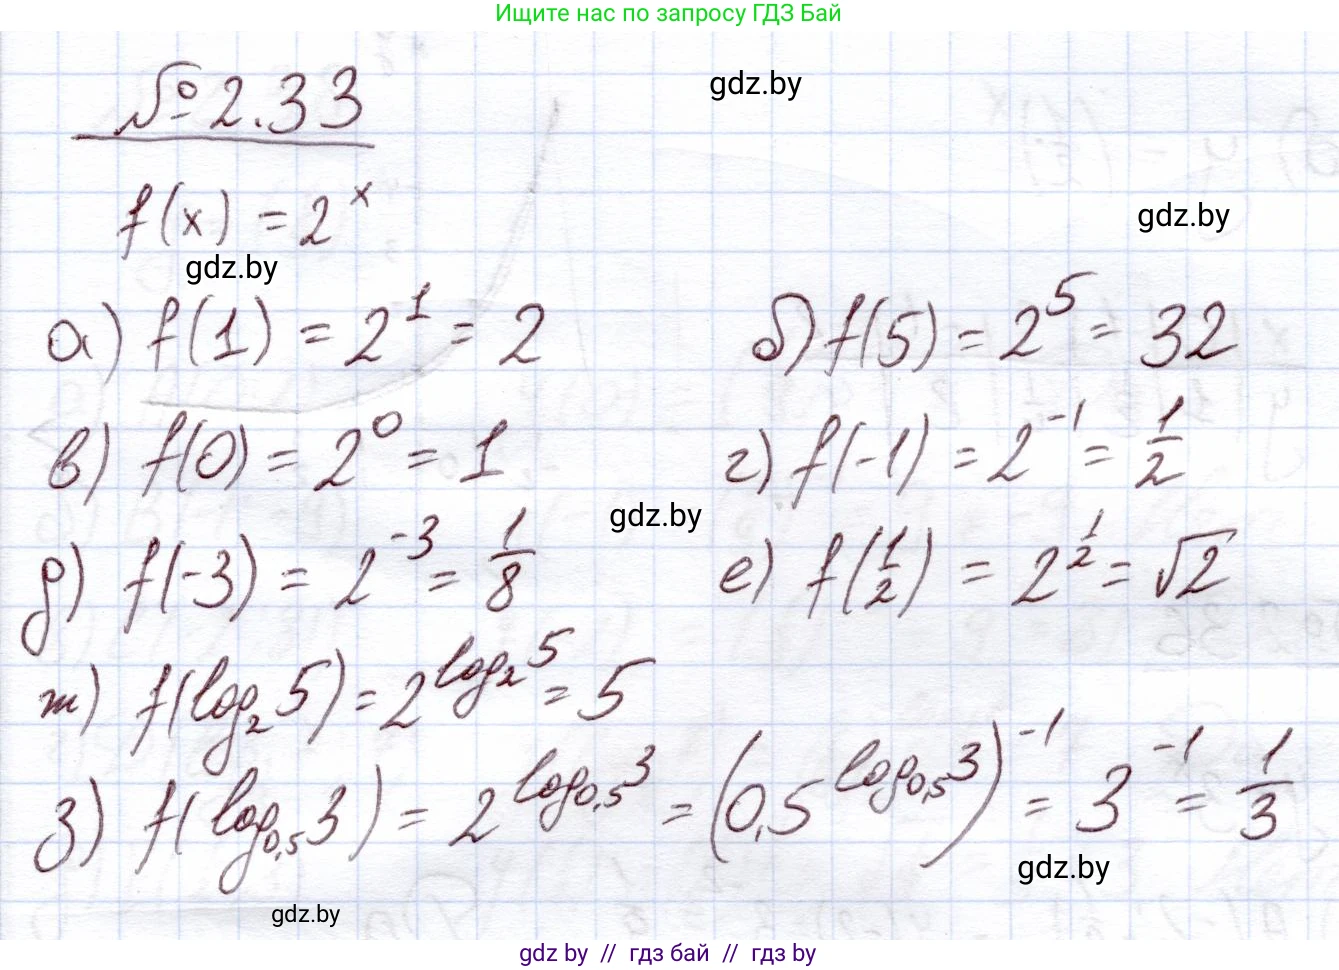 Ищите нас по запросу ГДЗ Бай
№ 2.33
gdz.by
f(x) = 2^x
gdz.by
gdz.by
а) f(1) = 2^1 = 2
б) f(5) = 2^5 = 32
в) f(0) = 2^0 = 1
г) f(-1) = 2^-1 = 1/2
gdz.by
д) f(-3) = 2^-3 = 1/8
е) f(1/2) = 2^1/2 = √2
ж) f(log_2 5) = 2^log_2 5 = 5
з) f(log_0,5 3) = 2^log_0,5 3 = (0,5^log_0,5 3)^-1 = 3^-1 = 1/3
gdz.by
gdz.by
gdz by // гдз бай // гдз by